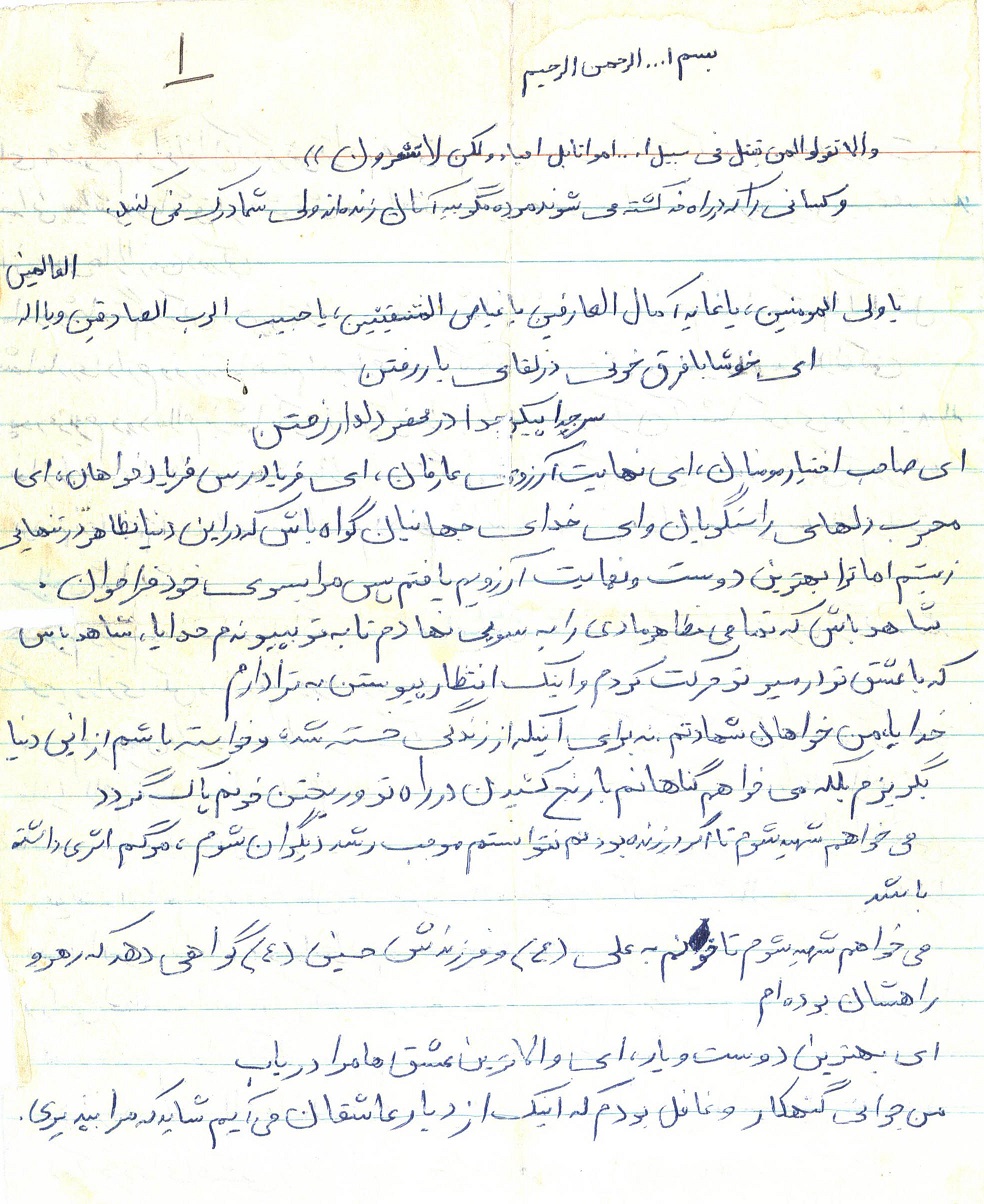 ۱
بسم ا... الرحمن الرحیم
والا تقولوالمن یقتل فی سبیل ا... امواتابل احیاء ولکن لا تشعرون ))
و کسانی را که در راه خدا کشته می شوند مرده مگویید آنان زنده اند ولی شما درک نمی کنید.
العالمین
یا ولی المومنین، یا غایه آمال العارفین یا غیاص المستغیثین، یا حبیب الرب الصادقین و یا اله
ای خوشا با فرق خونی در لقای یار رفتن
سر جدا پیکر جدا در محضر دلدار رفتن
ای صاحب اختیار مومنان، ای نهایت آرزوی عارفان، ای فریادرس فریاد خواهان، ای
محبوب دلهای راستگویان و ای خدای جهانیان گواه باش که در این دنیا بظاهر در تنهایی
زیستم اما ترا بهترین دوست و نهایت آرزویم یافتم پس مرا بسوی خود فراخوان.
شاهد باش که تمامی مظاهر مادی را به سویی نهادم تا به تو بپیوندم خدایا، شاهد باش
که با عشق تو در مسیر تو حرکت کردم و اینک انتظار پیوستن به ترا دارم
خدایا، من خواهان شهادتم نه برای اینکه از زندگی خسته شده و خواسته باشم از این دنیا
بگریزم بلکه می خواهم گناهانم با رنج کشیدن در راه تو و ریختن خونم پاک گردد
می خواهم شهید شوم تا اگر در زنده بودنم نتوانستم موجب رشد دیگران شوم، مرگم اثری داشته
باشد
می خواهم شهید شوم تا خونم به علی (ع) و فرزندش حسین (ع) گواهی دهد که رهرو
راهشان بوده ام
ای بهترین دوست و یار، ای والاترین عشق ها مرا دریاب
من جوانی گنهکار و غافل بودم که اینک از دیار عاشقان می آیم شاید که مرا بپذیری.